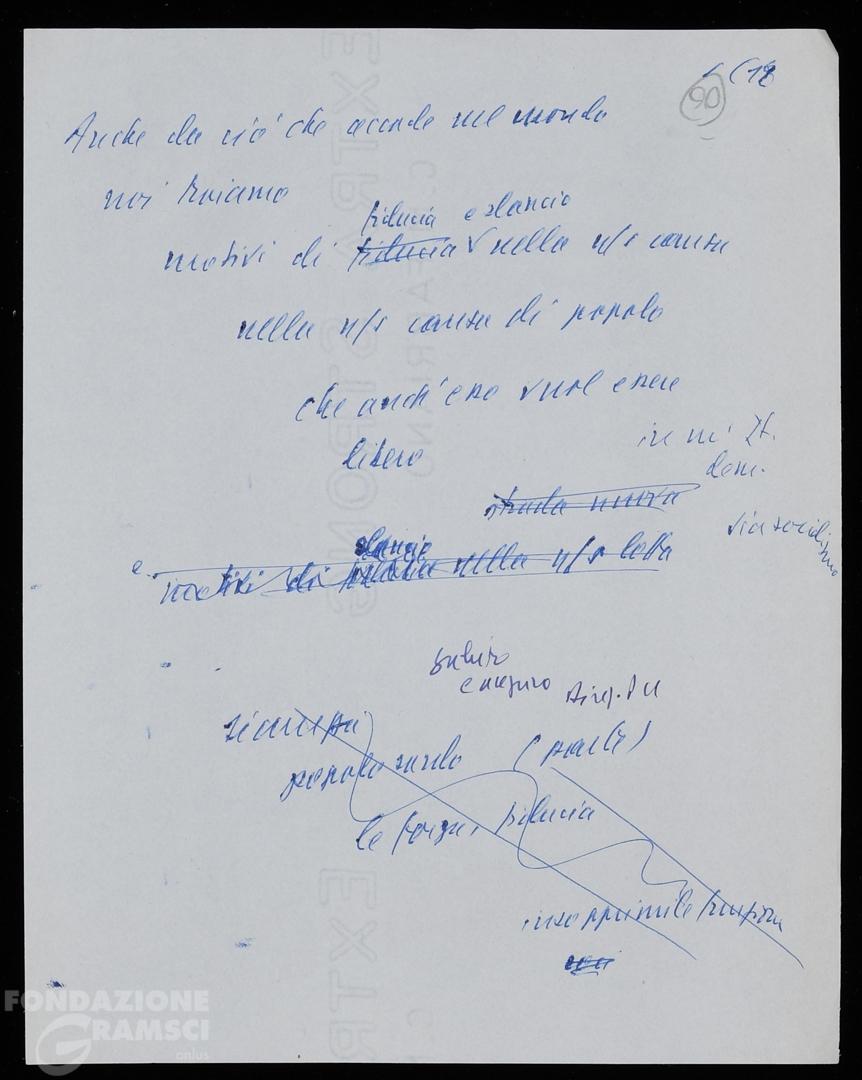 90
Anche da ciò che accade nel mondo
noi troviamo
fiducia e slancio
motivi di fiducia nella n/s causa
nella n/s causa di popolo
che anch'esso vuol essere
libero
in It.
dem.
strada nuova
via socialismo
slancio
e motivi di nella n/s lotta
saluto
e auguro Direz. PCI
popolo sardo
le forze, fiducia
insopprimibile funzione
FONDAZIONE
GRAMSCI
onlus